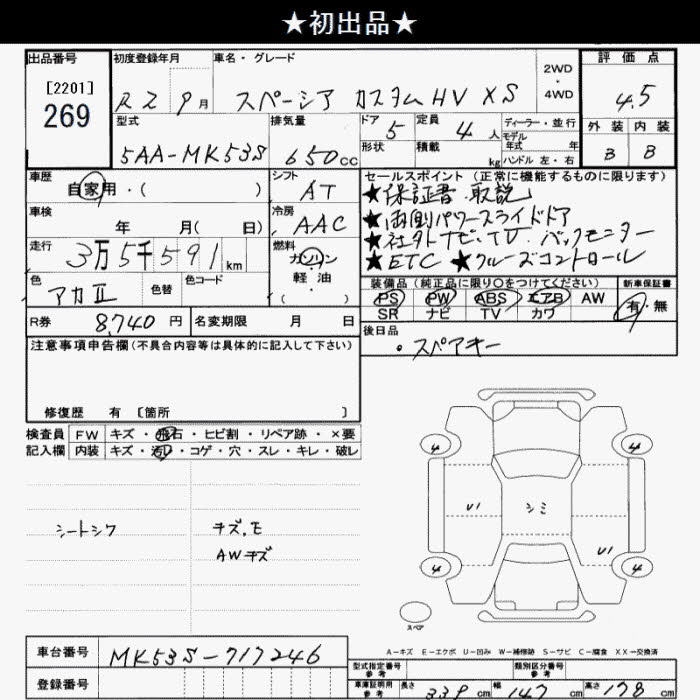 ★初出品★
出品番号
[2201]
269
初度登録年月
R2 9月
車名・グレード
スペーシア カスタムHV XS
2WD
・
4WD
評価点
4.5
外装 内装
B B
型式
5AA-MK53S
排気量
650cc
ドア 5
形状
定員 4人
積載 kg
ディーラー・並行
モデル
年式 年
ハンドル 左・右
車歴
自家用・( )
シフト
AT
車検
年 月( 日)
冷房
AAC
走行
3万5千591km
燃料
ガソリン
軽油
( )
色
アカII
色替
色コード
R券 8,740円
名変期限 月 日
セールスポイント(正常に機能するものに限ります)
★保証書 取説
★両側パワースライドドア
★社外ナビ・TV バックモニター
★ETC ★クルーズコントロール
装備品(純正品に限り○をつけてください)
PS PW ABS エアB AW
SR ナビ TV カワ
新車保証書
有・無
後日品
・スペアキー
注意事項申告欄(不具合内容等は具体的に記入して下さい)
修復歴 有 [箇所 ]
検査員
記入欄
FW キズ・飛石・ヒビ割・リペア跡・×要
内装 キズ・汚レ・コゲ・穴・スレ・キレ・破レ
シートシワ
キズ、E
AWキズ
4 4
U1 シミ
U1
4 4
スペア
A-キズ E-エクボ U-凹み W-補修跡 S-サビ C-腐食 XX-交換済
車台番号 MK53S-717246
登録番号
型式指定番号
参考
類別区分番号
参考
車庫証明用
参考
長さ 339cm 幅 147cm 高さ 178cm